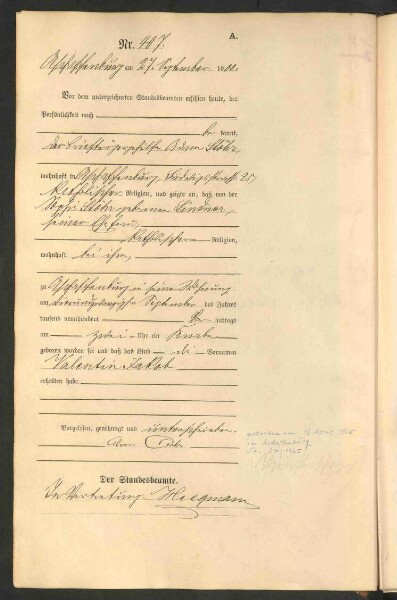 A.
Nr. 407.
Aschaffenburg am 27. September 1900.
Vor dem unterzeichneten Standesbeamten erschien heute, der
Persönlichkeit nach
be kannt,
der Adam Stöhr
wohnhaft in Aschaffenburg, 25,
katholischer Religion, und zeigte an, daß von der
Sophie Stöhr geborene
seiner Ehefrau,
katholischer Religion,
wohnhaft bei ihm,
zu Aschaffenburg in seiner Wohnung
am vierundzwanzigsten September des Jahres
tausend neunhundert mittags
um zwei Uhr ein Knabe
geboren worden sei und daß das Kind die Vornamen
Valentin Jakob
erhalten habe
Vorgelesen, genehmigt und unterschrieben.
Adam Stöhr
Der Standesbeamte.
In Vertretung: Hregmann
gestorben am 1965
in Aschaffenburg